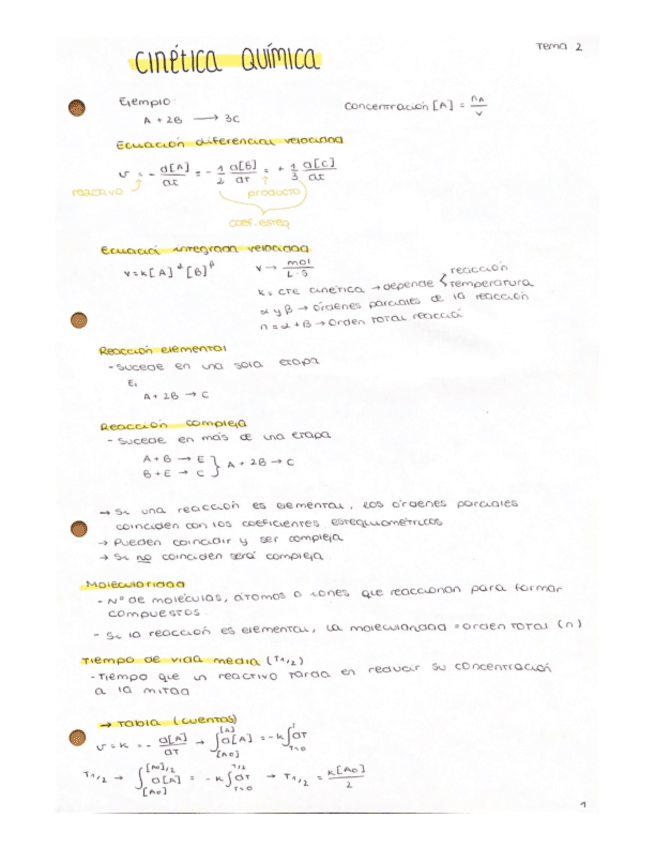 Tema 2
CINÉTICA QUÍMICA
Ejemplo: Concentración [A] = nA/V
A + 2B → 3C
Ecuación diferencial velocidad
v = - d[A]/dt = - 1/2 d[B]/dt = + 1/3 d[C]/dt
reactivo producto
coef. esteq
Ecuació integrada velocidad
v = k[A]^α [B]^β v → mol/L·s
k = cte cinética → depende { reacción
temperatura
α y β → órdenes parciales de la reacción
n = α + β → Orden total reacció
Reacción elemental
- Sucede en una sola etapa
Ej
A + 2B → C
Reacción compleja
- Sucede en más de una etapa
A + B → E
B + E → C } A + 2B → C
→ Si una reacción es elemental, los órdenes parciales
coinciden con los coeficientes estequiométricos
→ Pueden coincidir y ser compleja
→ Si no coinciden será compleja
Molecularidad
- Nº de moléculas, átomos o iones que reaccionan para formar
compuestos
- Si la reacción es elemental, la molecularidad = orden total (n)
Tiempo de vida media (T1/2)
- Tiempo que un reactivo tarda en reducir su concentración
a la mitad
→ Tabla (cuentas)
v = k = - d[A]/dt → ∫[A0][A] d[A] = -k ∫t=0 t dt
T1/2 → ∫[A0][A0]/2 d[A] = -k ∫t=0 t1/2 dt → T1/2 = k[A0]/2
1